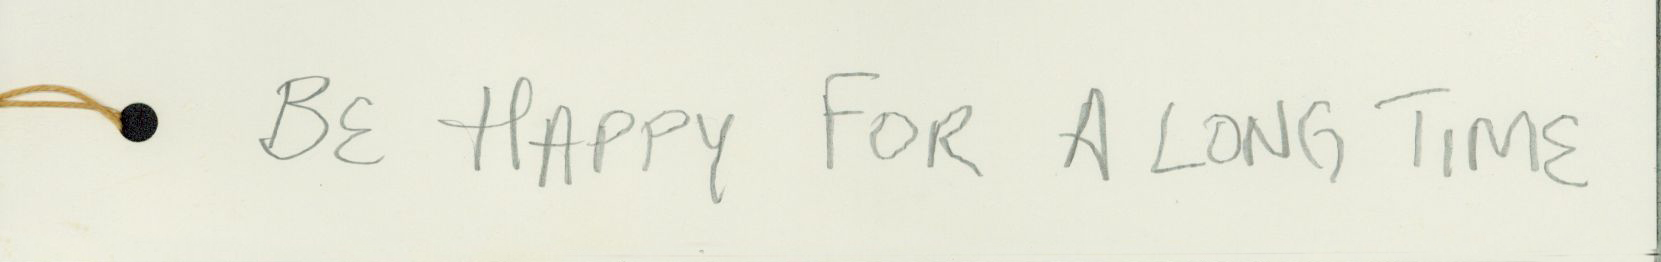 BE HAPPY FOR A LONG TIME